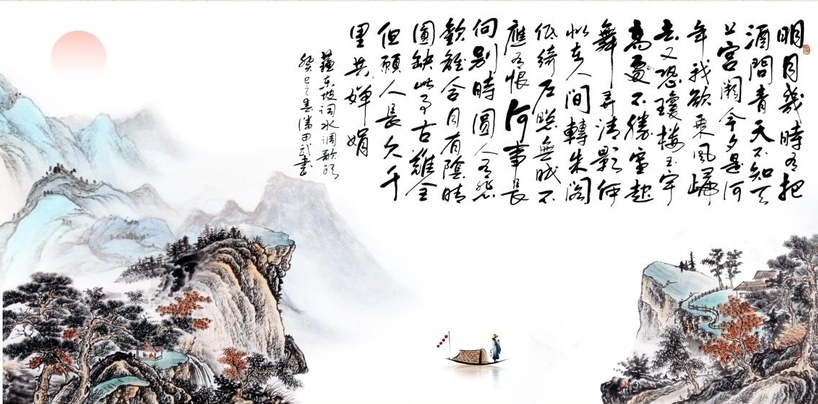 明月幾時有把
酒問青天不知天
上宮闕今夕是何
年我欲乘風歸
去又恐瓊樓玉宇
高處不勝寒起
舞弄清影何
似在人間轉朱閣
低綺戶照無眠不
應有恨何事長
向別時圓人有悲
歡離合月有陰晴
圓缺此事古難全
但願人長久千
里共嬋娟
蘇東坡詞水調歌頭
癸巳之